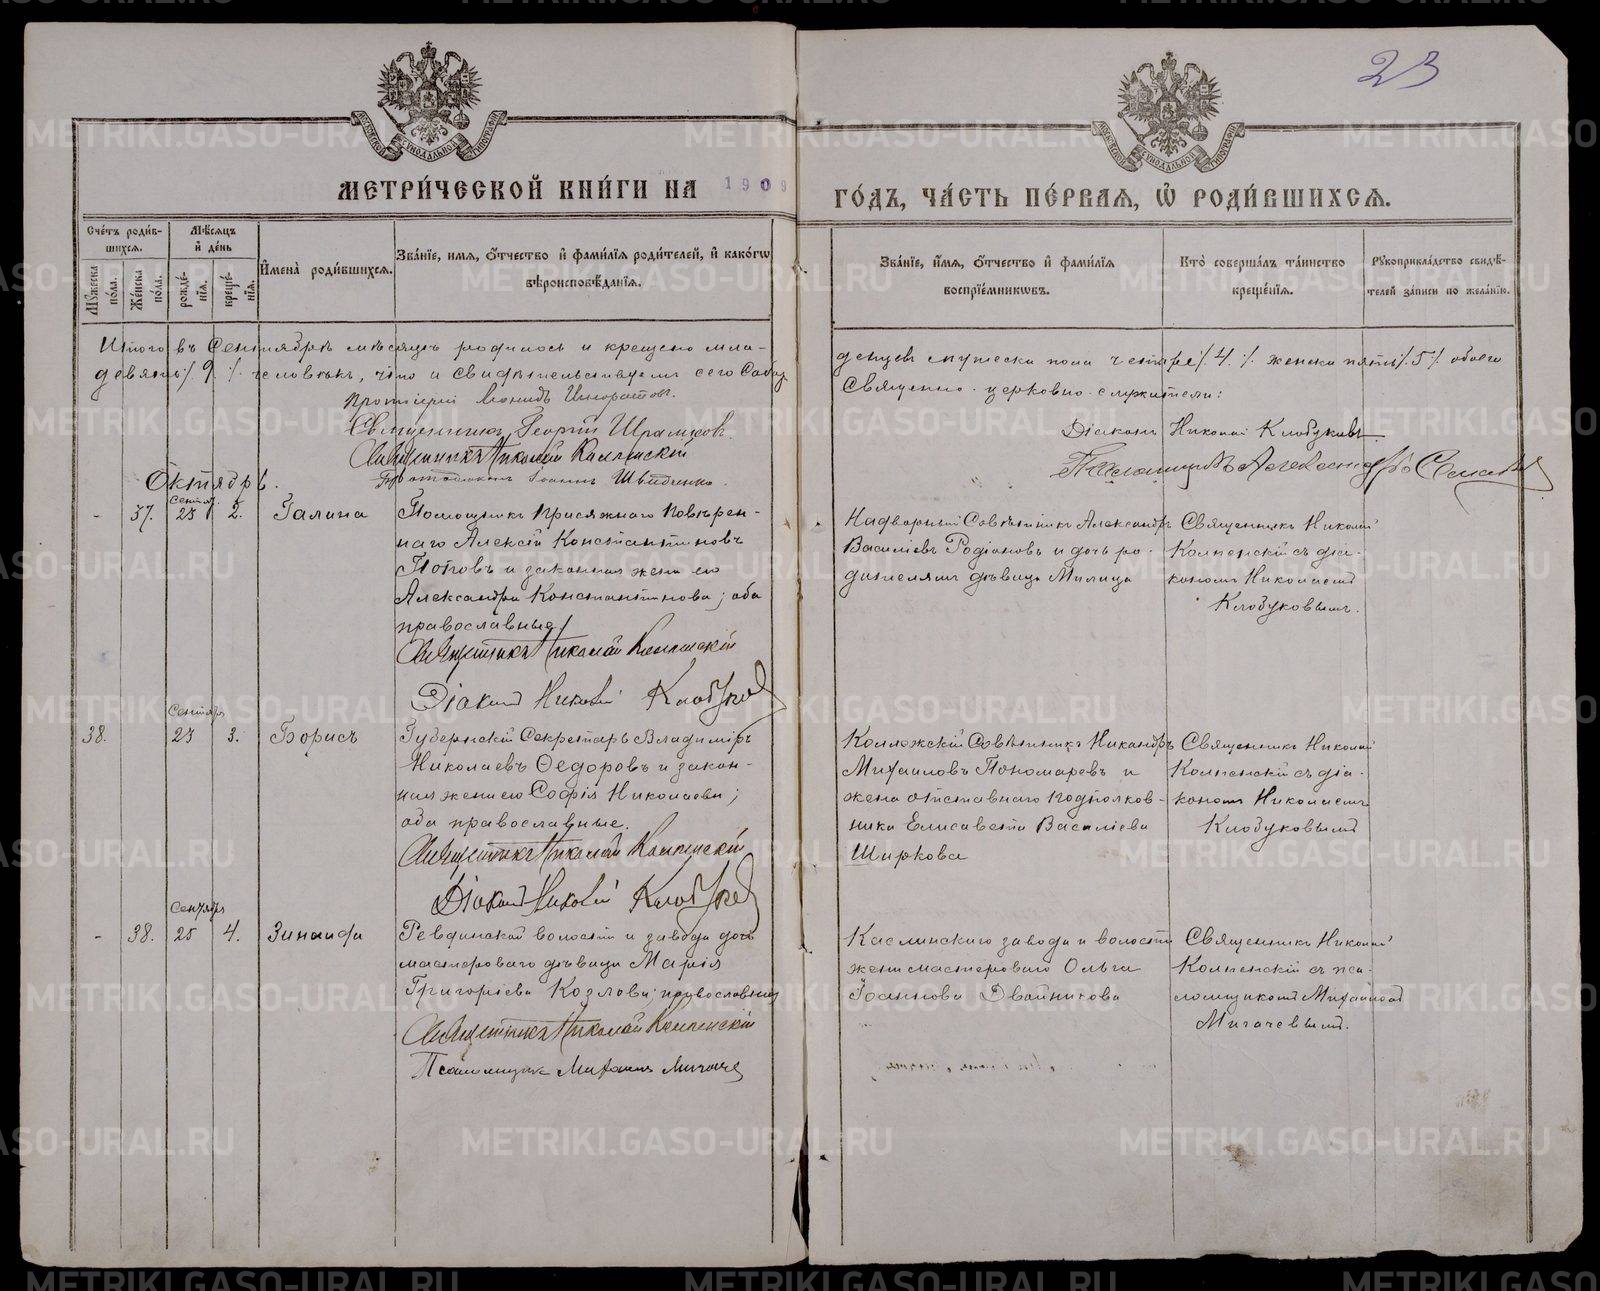 23
МЕТРИ́ЧЕСКОЙ КНИ́ГИ НА 1909
ГО́ДЪ, ЧА́СТЬ ПЕ́РВАѦ, Ѡ҆ РОДИ́ВШИХСѦ.
Сче́тъ роди́в-
шихсѧ.
Мꙋ́жеска по́ла.
Же́нска по́ла.
Мѣ́сѧцъ
и҆ де́нь
рожде́-
нїѧ.
креще́-
нїѧ.
И҆мена̀ роди́вшихсѧ.
Зва́нїе, имѧ, о҆́тчество и҆ фами́лїѧ роди́телей, и҆ како́гѡ
вѣроисповѣ́данїѧ.
Зва́нїе, и҆́мѧ, о҆́тчество и҆ фами́лїѧ
воспрїе́мникѡвъ.
Кто̀ соверша́лъ та́инство
креще́нїѧ.
Рꙋкоприкла́дство свидѣ́-
телей за́писи по жела́нїю.
Итого въ Сентябрѣ мѣсяцѣ родилось и крещено мла-
денцевъ мужеска пола четыре /.4./. женска пять /.5./. обоего
девять /.9./. человѣкъ, что и свидѣтельствуемъ сего Собора
Священно-церковно-служители:
Протоіерей Леонидъ
Священникъ Георгій
Священникъ Николай Колпенскій
Діаконъ Николай Клобуковъ.
Протодіаконъ Іоаннъ
Псаломщикъ Александръ
Октябрь.
- 37. Сентяб. 23 2. Галина
Помощникъ Присяжнаго Повѣрен-
наго Алексій Константиновъ
Поповъ и законная жена его
Александра Константинова; оба
православные.
Священникъ Николай Колпенскій
Діаконъ Николай Клобуковъ
Надворный Совѣтникъ Александръ
Василіевъ Родіоновъ и дочь ро-
дителямъ дѣвица Милица
Священникъ Николай
Колпенскій съ діа-
кономъ Николаемъ
Клобуковымъ.
38. Сентябр. 23 3. Борисъ
Губернскій Секретарь Владиміръ
Николаевъ Ѳедоровъ и закон-
ная жена его Софія Николаева;
оба православные.
Священникъ Николай Колпенскій
Діаконъ Николай Клобуковъ
Коллежскій Совѣтникъ Никандръ
Михаиловъ Пономаревъ и
жена отставнаго подполков-
ника Елисавета Василіева
Ширкова
Священникъ Николай
Колпенскій съ діа-
кономъ Николаемъ
Клобуковымъ
- 38. Сентябр. 25 4. Зинаида
Ревдинской волости и завода дочь
мастероваго дѣвица Марія
Григоріева Козлова; православная
Священникъ Николай Колпенскій
Псаломщикъ Михаилъ Мичачевъ
Каслинскаго завода и волости
жена мастероваго Ольга
Іоаннова Двойникова
Священникъ Николай
Колпенскій съ пса-
ломщикомъ Михаиломъ
METRIKI.GASO-URAL.RU